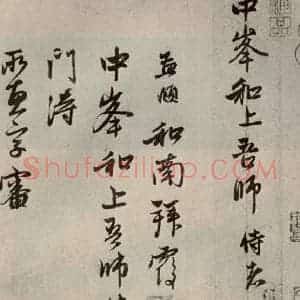 中峯和上吾师 侍者
孟頫和南拜覆
中峯和上吾师
门 得
所惠字審
Shufaziliao.com